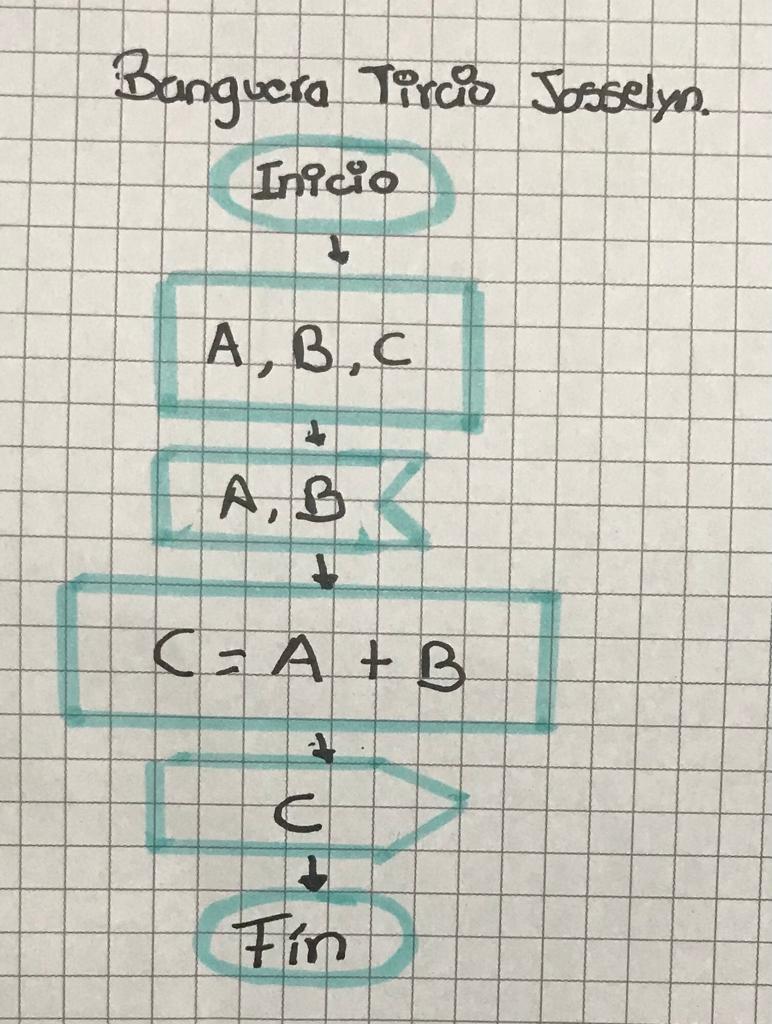 Banguera Tircio Josselyn.
Inicio
A, B, C
A, B
C = A + B
C
Fin